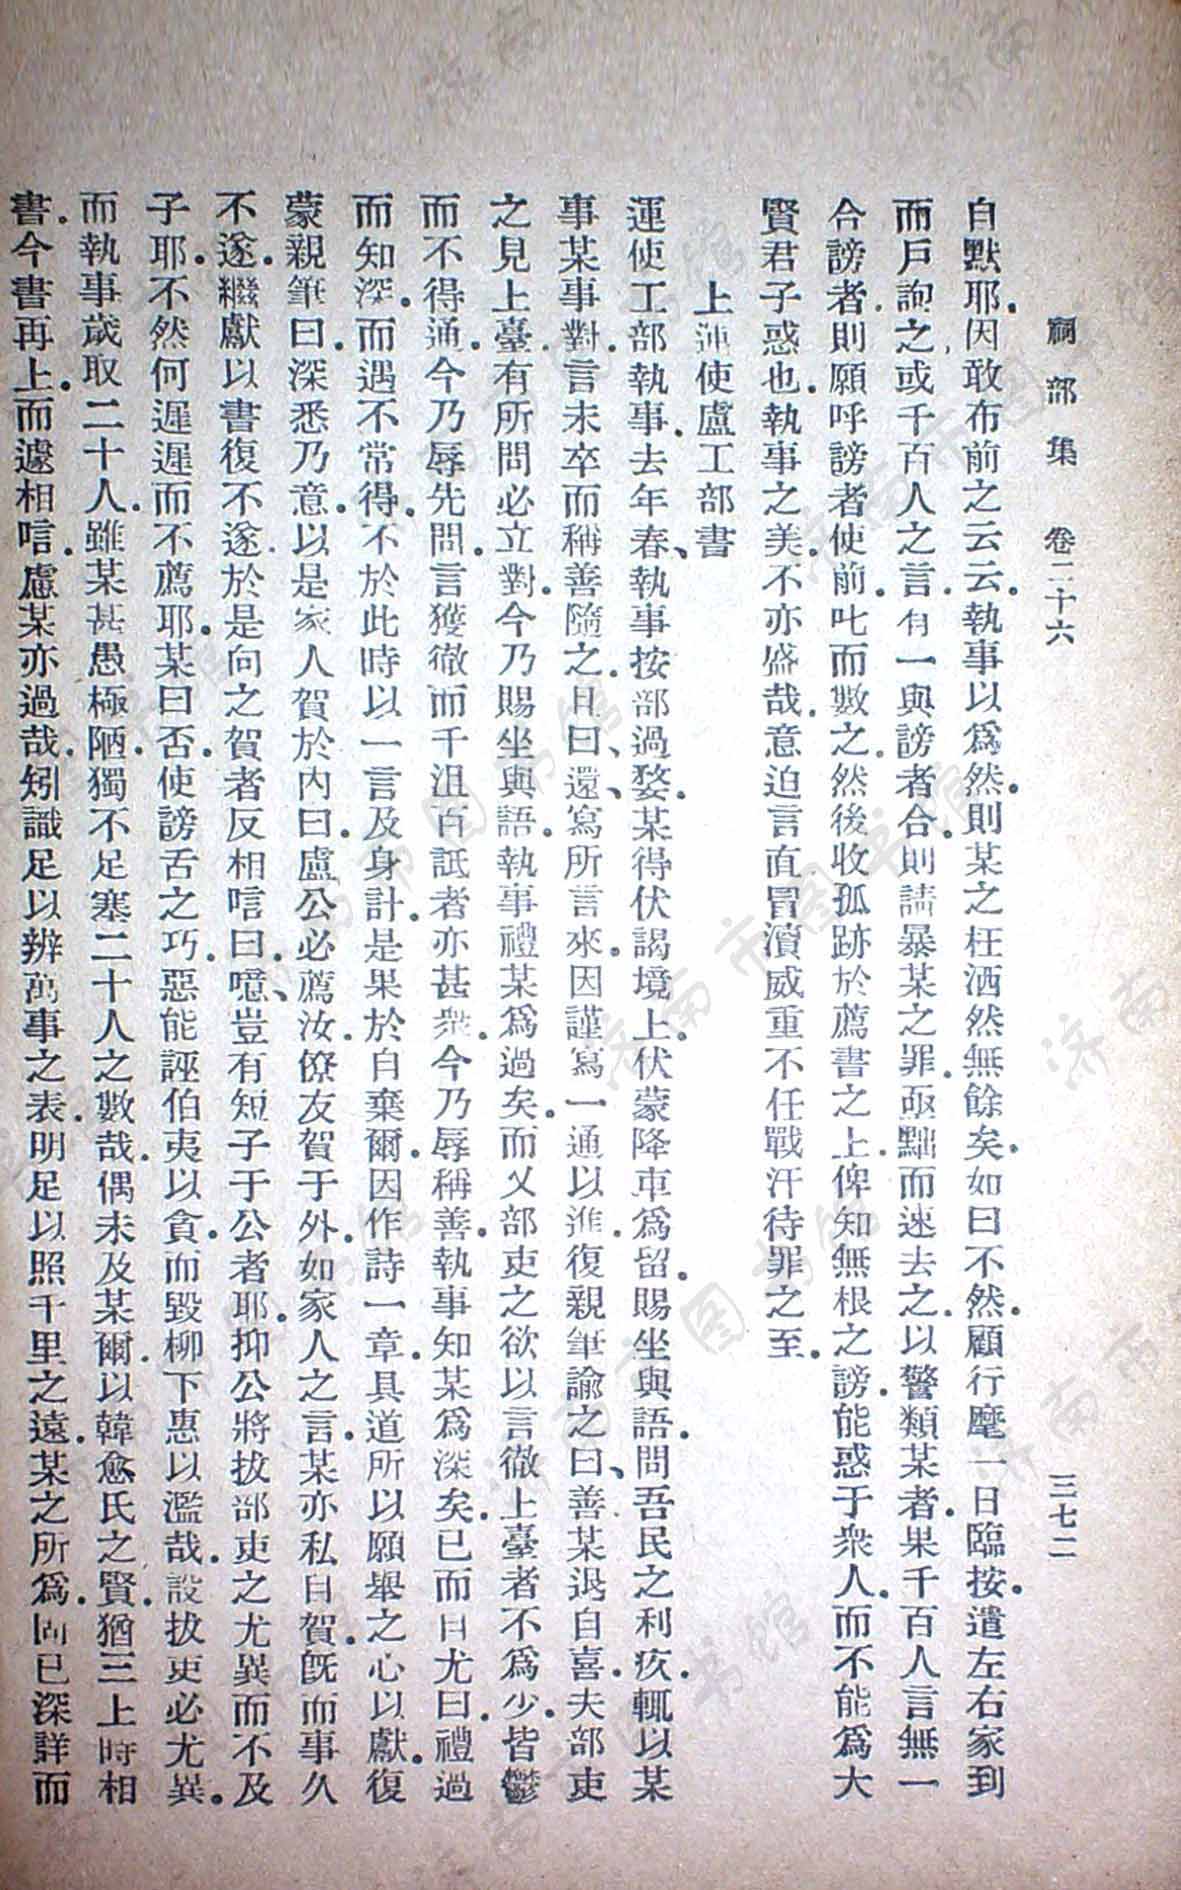 祠部集 卷二十六 三七二
自默耶。因敢布前之云云。執事以爲然。則某之枉洒然無餘矣。如曰不然。顧行麾一日臨按。遣左右家到
而戶詢之。或千百人之言。有一與謗者合。則請暴某之罪。亟黜而速去之。以警類某者。果千百人言無一
合謗者。則願呼謗者使前。叱而數之。然後收孤跡於薦書之上。俾知無根之謗。能惑于衆人。而不能爲大
賢君子惑也。執事之美。不亦盛哉。意迫言直。冒瀆威重。不任戰汗待罪之至。
上運使盧工部書
運使工部執事。去年春、執事按部過婺。某得伏謁境上。伏蒙降車爲留。賜坐與語。問吾民之利疚。輒以某
事某事對。言未卒而稱善隨之。且曰、還、寫所言來。因謹寫一通以進。復親筆諭之曰、善。某退自喜。夫部吏
之見上臺。有所問必立對。今乃賜坐與語。執事禮某爲過矣。而又部吏之欲以言徹上臺者不爲少。皆鬱
而不得通。今乃辱先問。言獲徹而千沮百詆者亦甚衆。今乃辱稱善。執事知某爲深矣。已而日尤曰。禮過
而知深。而遇不常得。不於此時以一言及身計。是果於自棄爾。因作詩一章。具道所以願舉之心以獻。復
蒙親筆曰。深悉乃意。以是家人賀於內曰。盧公必薦汝。僚友賀于外。如家人之言。某亦私自賀。旣而事久
不遂。繼獻以書復不遂。於是向之賀者反相唁曰、噫、豈有短子于公者耶。抑公將拔部吏之尤異而不及
子耶。不然何遲遲而不薦耶。某曰否。使謗舌之巧。惡能誣伯夷以貪。而毀柳下惠以濫哉。設拔吏必尤異。
而執事歲取二十人。雖某甚愚極陋。獨不足塞二十人之數哉。偶未及某爾。以韓愈氏之賢。猶三上時相
書。今書再上。而遽相唁。慮某亦過哉。矧識足以辨萬事之表。明足以照千里之遠。某之所爲。固已深詳而